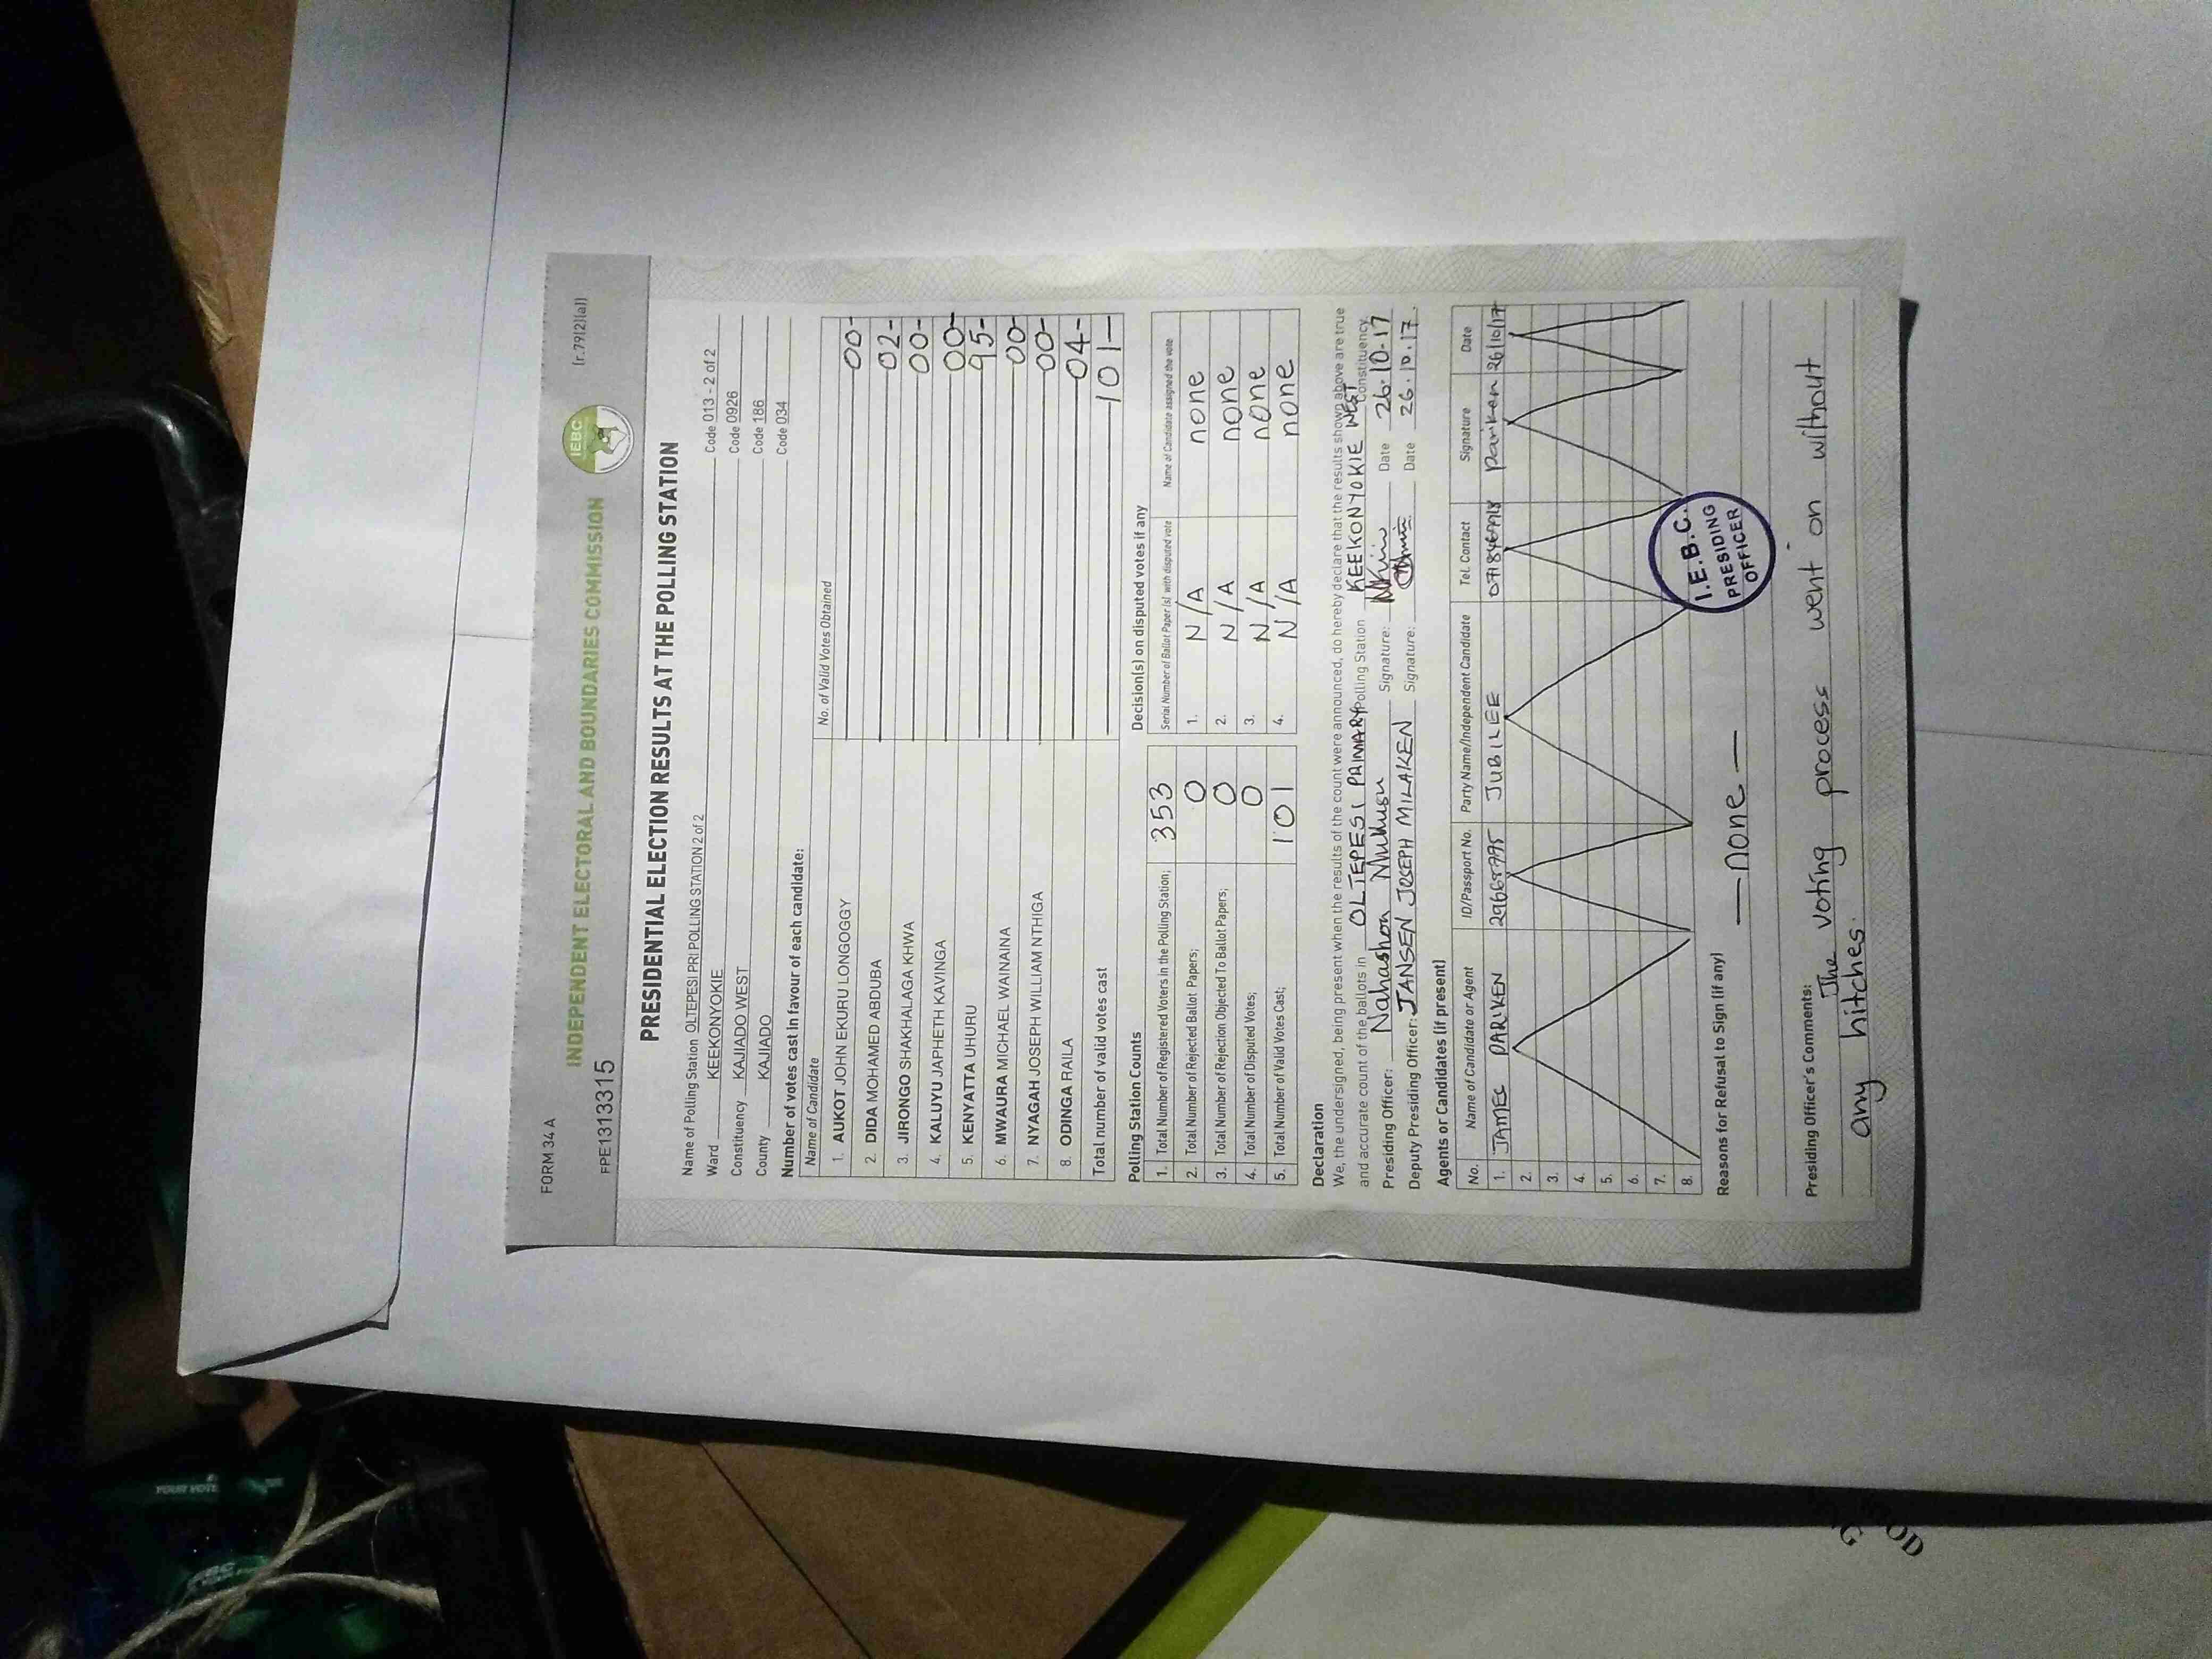 FORM 34 A
(r.79(2)(a))
INDEPENDENT ELECTORAL AND BOUNDARIES COMMISSION
IEBC
FPE1313315
PRESIDENTIAL ELECTION RESULTS AT THE POLLING STATION
Name of Polling Station OLTEPESI PRI POLLING STATION 2 of 2 Code 013 - 2 of 2
Ward KEEKONYOKIE Code 0926
Constituency KAJIADO WEST Code 186
County KAJIADO Code 034
Number of votes cast in favour of each candidate:
Name of Candidate No. of Valid Votes Obtained
1. AUKOT JOHN EKURU LONGOGGY 00-
2. DIDA MOHAMED ABDUBA 02-
3. JIRONGO SHAKHALAGA KHWA 00-
4. KALUYU JAPHETH KAVINGA 00-
5. KENYATTA UHURU 95-
6. MWAURA MICHAEL WAINAINA 00-
7. NYAGAH JOSEPH WILLIAM NTHIGA 00-
8. ODINGA RAILA 04-
Total number of valid votes cast 101-
Polling Station Counts
1. Total Number of Registered Voters in the Polling Station; 353
2. Total Number of Rejected Ballot Papers; 0
3. Total Number of Rejection Objected To Ballot Papers; 0
4. Total Number of Disputed Votes; 0
5. Total Number of Valid Votes Cast; 101
Decision(s) on disputed votes if any
Serial Number of Ballot Paper(s) with disputed vote Name of Candidate assigned the vote
1. N/A none
2. N/A none
3. N/A none
4. N/A none
Declaration
We, the undersigned, being present when the results of the count were announced, do hereby declare that the results shown above are true
and accurate count of the ballots in OLTEPESI PRIMARY Polling Station KEEKONYOKIE WEST Constituency.
Presiding Officer: Nahashon Signature: Date 26-10-17
Deputy Presiding Officer: JANSEN JOSEPH MILAKEN Signature: Date 26.10.17
Agents or Candidates (if present)
No. Name of Candidate or Agent ID/Passport No. Party Name/Independent Candidate Tel. Contact Signature Date
1. JAMES PARIKEN JUBILEE Pariken 26/10/17
2.
3.
4.
5.
6.
7.
8.
I.E.B.C.
PRESIDING
OFFICER
Reasons for Refusal to Sign (if any)
—none—
Presiding Officer's Comments:
The voting process went on without
any hitches.
YOUR VOTE